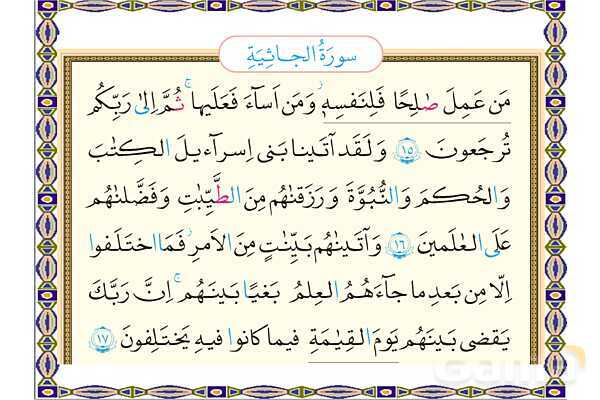 سورَةُ الجـاثِيَةِ
مَن عَمِلَ صٰلِحًا فَلِنَفسِهٖ وَ مَن اَسآءَ فَعَلَيها ۚ ثُمَّ اِلىٰ رَبِّكُم
تُرجَعونَ ﴿۱۵﴾ وَ لَقَد آتَينا بَنى اِسرآءيلَ الكِتٰبَ
وَ الحُكمَ وَ النُّبُوَّةَ وَ رَزَقنٰهُم مِنَ الطَّيِّبٰتِ وَ فَضَّلنٰهُم
عَلَى العٰلَمينَ ﴿۱۶﴾ وَ آتَينٰهُم بَيِّنٰتٍ مِنَ الاَمرِ ۖ فَمَا اختَلَفوا
اِلّا مِن بَعدِ ما جآءَهُمُ العِلمُ بَغيًا بَينَهُم ۚ اِنَّ رَبَّكَ
يَقضى بَينَهُم يَومَ القِيٰمَةِ فيما كانوا فيهِ يَختَلِفونَ ﴿۱۷﴾
Gama